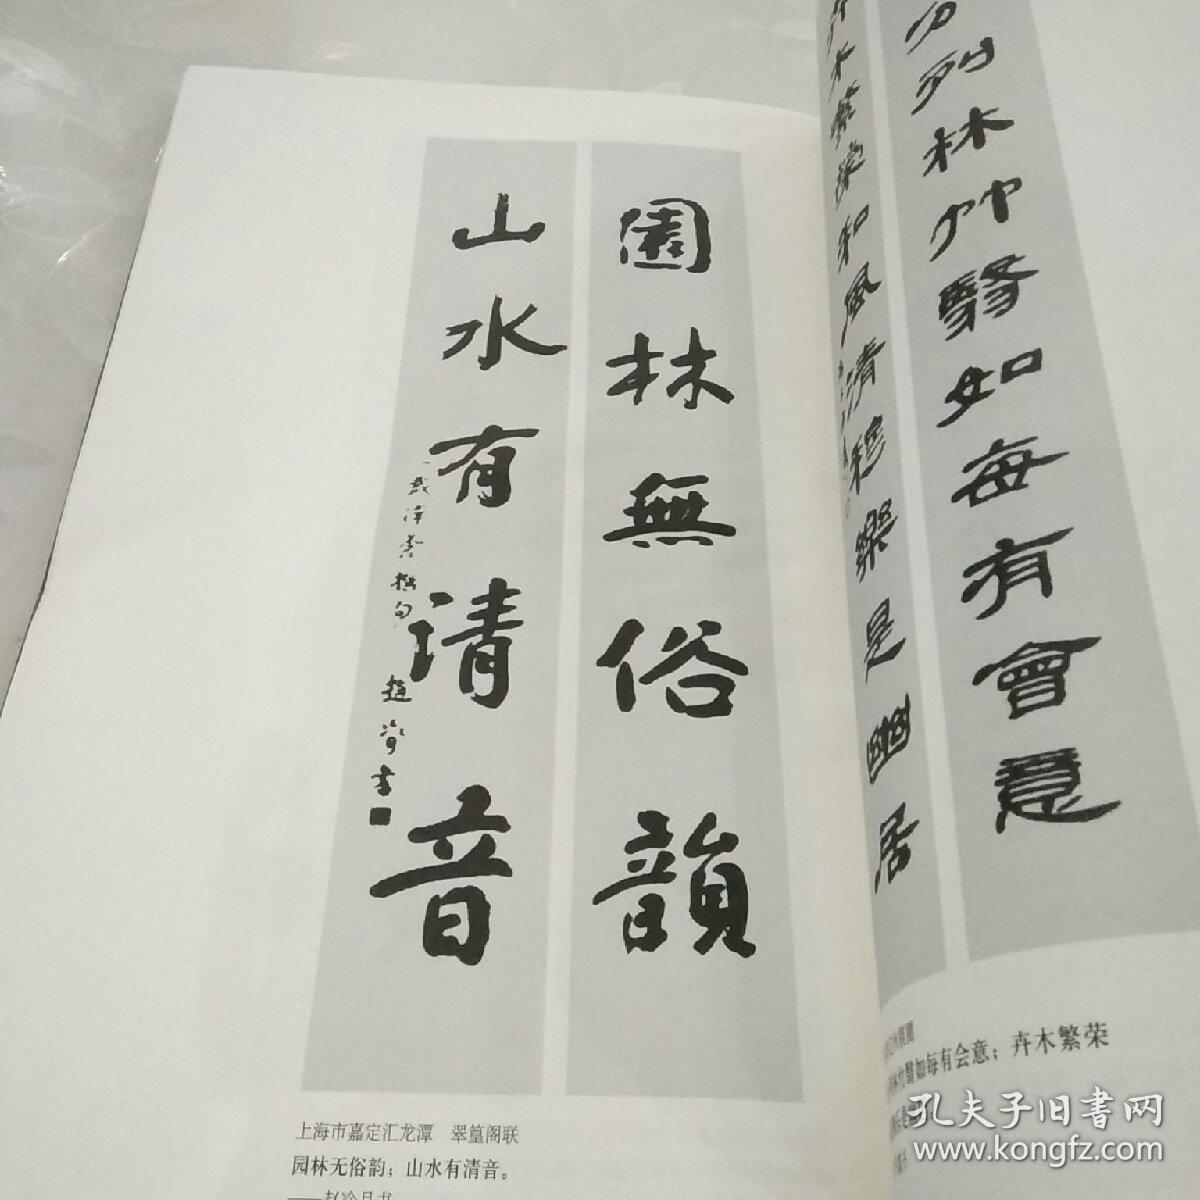 園林無俗韻
山水有清音
撰句
趙冷月書
上海市嘉定汇龙潭　翠篁阁联
园林无俗韵；山水有清音。
列林竹翳如每有會意
木繁榮和風清穆樂是幽居
翳如每有会意；卉木繁荣
孔夫子旧书网
www.kongfz.com